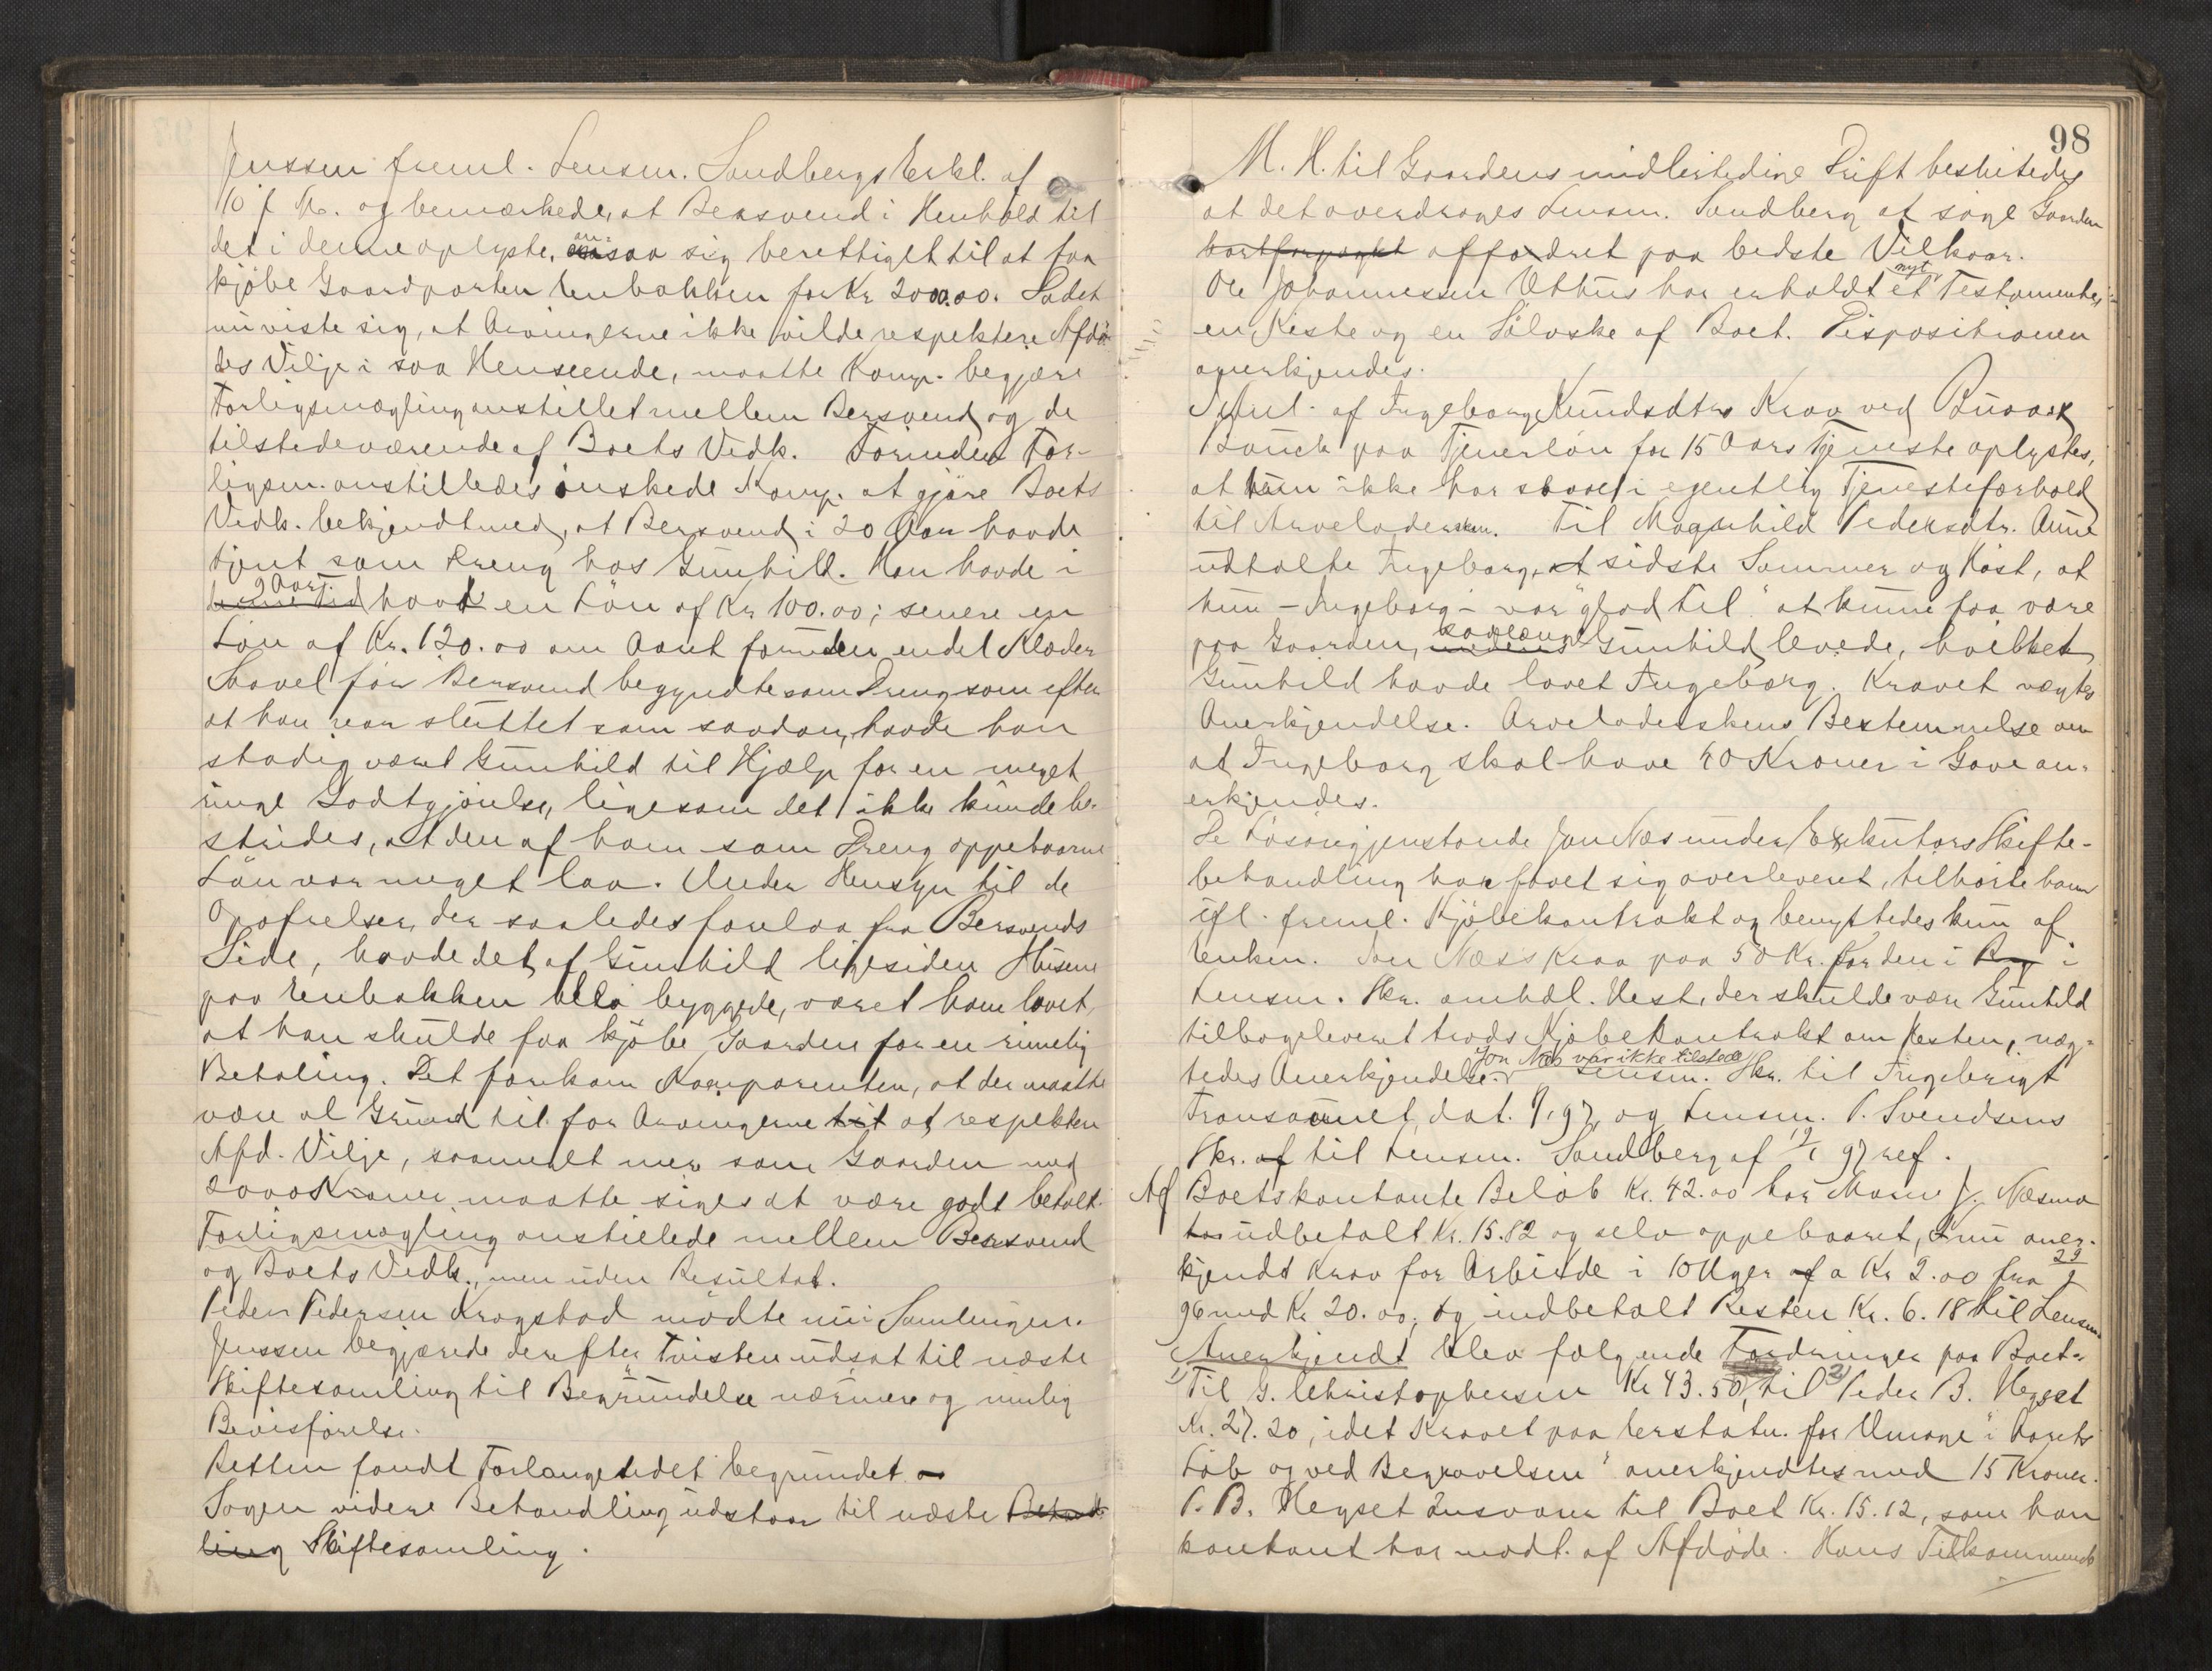 Jenssen freml. Lensm. Sandbergs Erkl. af
10 f. M. og bemærkede, at Bersvend i Henhold til
det i denne oplyste, ansaa sig berettiget til at faa
kjøbe Gaardparten Enbakken for Kr 2000.00. Da det
nu viste sig, at Arvingerne ikke vilde respektere Afdø-
des Vilje i saa Henseende, maatte Komp. begjære
Forligsmægling anstillet mellem Bersvend og de
tilstedeværende af Boets Vedk. Forinden For-
ligsm. anstilledes ønskede Komp. at gjøre Boets
Vedk. bekjendt med, at Bersvend i 20 Aar havde
tjent som Dreng hos Gunhild. Han havde i
2 Aar havt en Løn af Kr 100.00; senere en
Løn af Kr. 120.00 om Aaret foruden endel Klæder
Saavel før Bersvend begyndte som Dreng som efter
at han var sluttet som saadan, havde han
stadig været Gunhild til Hjælp for en meget
ringe Godtgjørelse, ligesom det ikke kunde be-
strides, at den af ham som Dreng oppebaarne
Løn var meget lav. Under Hensyn til de
Opofrelser, der saaledes forelaa fra Bersvends
Side, havde det af Gunhild ligesiden Husene
paa Enbakken blev byggede, været ham lovet,
at han skulde faa kjøbe Gaarden for en rimelig
Betaling. Det forekom Komparenten, at der maatte
være al Grund til for Arvingerne til at respektere
Afd. Vilje, saameget mer som Gaarden med
2000 Kroner maatte siges at være godt betalt.
Forligsmægling anstillede mellem Bersvend
og Boets Vedk., men uden Resultat.
Peder Pedersen Krogstad mødte nu i Samlingen.
Jenssen begjærede derefter Tvisten udsat til næste
Skiftesamling til Begrundelse nærmere og mulig
Bevisførelse.
Retten fandt Forlangendet begrundet
Sagen videre Behandling udstaar til næste Behand-
ling Skiftesamling.
98
M. H. til Gaardens midlertidige Drift besluttedes
at det overdrages Lensm. Sandberg at søge Gaarden
bortforpagtet opfodret paa bedste Vilkaar.
Ole Johannessen Uthus har erholdt et nyt Testamente,
en Kiste og en Sølvske af Boet. Dispositionen
anerkjendes.
af Ingeborg Knudsdtrs Krav ved
Bauck paa Tjenerløn for 15 Aars Tjeneste oplystes,
at hun ikke har staaet i egentlig Tjenesteforhold
til Arveladersken. Til Magnhild Pedersdtr. Aune
udtalte Ingeborg, at sidste Sommer og Høst, at
hun - Ingeborg - var "glad til" at kunne faa være
paa Gaarden, saalænge Gunhild levede, hvilket
Gunhild havde lovet Ingeborg. Kravet nægtes
Anerkjendelse. Arveladerskens Bestemmelse om
at Ingeborg skal have 40 Kroner i Gave an-
erkjendes.
De Løsøregjenstande Jon Næs under Exekutors Skifte-
behandling har faaet sig overleveret, tilhørte ham
ifl. freml. Kjøbekontrakt og benyttedes kun af
Enken. Jon Næss Krav paa 50 Kr. for den i
Lensm. Skr. omhdl. Hest, der skulde være Gunhild
tilbageleveret trods Kjøbekontrakt om Hesten, næg-
tedes Anerkjendelse. Jon Næs var ikke tilstede. Lensm. Skr. til Ingebrigt
dat. og Lensm. P. Svendsens
Skr. af til Lensm. Sandberg af 97 ref.
Af Boets kontante Beløb Kr. 42.00 har J. Næsmo
har udbetalt Kr. 15.82 og selv oppebaaret, nu aner-
kjendt Krav for Arbeide i 10 Uger af a Kr 2.00 fra
96 med Kr 20.00, og indbetalt Resten Kr. 6.18 til Lensm.
Anerkjendt blev følgende Fordringer paa Boet:
1) Til G. Christophersen Kr 43.50, til 2) Peder B. Hegset
Kr. 27.20, idet Kravet paa Erstatn. for Umage "i Aarets
Løb og ved Begravelsen" anerkjendtes med 15 Kroner.
P. B. Hegset ansvarer til Boet Kr. 15.12, som han
kontant har modt. af Afdøde. Hans Tilkommende